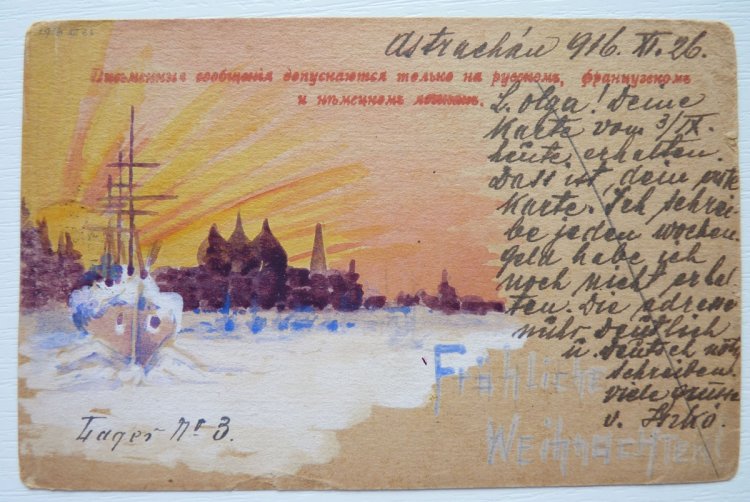 1916 XI 26
Astrachán 916. XI. 26.
Письменныя сообщенія допускаются только на русскомъ, французскомъ
и нѣмецкомъ языкахъ.
L. Olga! Deine
Karte vom 3/IX.
heute erhalten.
Dass ist, dein erste
Karte. Ich schrei-
be jeden wochen.
geld habe ich
noch nicht erhal
ten. Die adresse
mihr Deutlich
u. Deutsch
schreiben.
viele grüsse
v.
Lager No 3.
Fröhliche
Weihnachten!